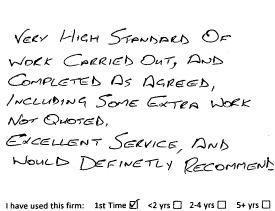 VERY HIGH STANDARD OF
WORK CARRIED OUT, AND
COMPLETED AS AGREED,
INCLUDING SOME EXTRA WORK
NOT QUOTED.
EXCELLENT SERVICE, AND
WOULD DEFINETLY RECOMMEND
I have used this firm: 1st Time ☑ <2 yrs ☐ 2-4 yrs ☐ 5+ yrs ☐